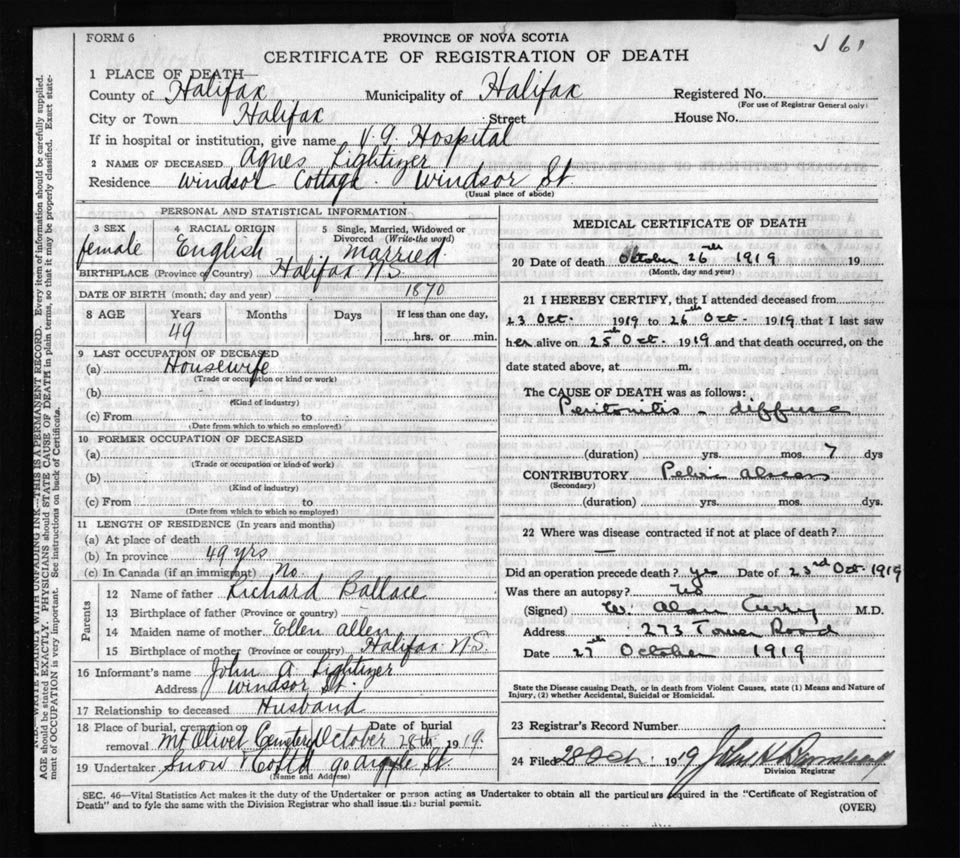 FORM 6
PROVINCE OF NOVA SCOTIA
CERTIFICATE OF REGISTRATION OF DEATH
1 PLACE OF DEATH—
County of Halifax Municipality of Halifax Registered No.
(For use of Registrar General only)
City or Town Halifax Street House No.
If in hospital or institution, give name V. G. Hospital
2 NAME OF DECEASED Agnes Lightizer
Residence Windsor Cottage. Windsor St.
(Usual place of abode)
PERSONAL AND STATISTICAL INFORMATION
3 SEX 4 RACIAL ORIGIN 5 Single, Married, Widowed or Divorced (Write the word)
female English Married
BIRTHPLACE (Province or Country) Halifax N.S.
DATE OF BIRTH (month, day and year) 1870
8 AGE Years Months Days If less than one day,
49 hrs. or min.
9 LAST OCCUPATION OF DECEASED
(a) Housewife
(Trade or occupation or kind or work)
(b)
(Kind of industry)
(c) From to
(Date from which to which so employed)
10 FORMER OCCUPATION OF DECEASED
(a)
(Trade or occupation or kind of work)
(b)
(Kind of industry)
(c) From to
(Date from which to which so employed)
11 LENGTH OF RESIDENCE (In years and months)
(a) At place of death
(b) In province 49 yrs
(c) In Canada (if an immigrant) No.
Parents
12 Name of father Richard Ballace
13 Birthplace of father (Province or country)
14 Maiden name of mother Ellen Allen
15 Birthplace of mother (Province or country) Halifax N.S.
16 Informant's name John A. Lightizer
Address Windsor St.
17 Relationship to deceased Husband
18 Place of burial, cremation or removal Mt Olivet Cemetery Date of burial October 28th 1919.
19 Undertaker Snow & Co Ltd 90 Argyle St.
(Name and Address)
MEDICAL CERTIFICATE OF DEATH
20 Date of death October 26th 1919 19
(Month, day and year)
21 I HEREBY CERTIFY, that I attended deceased from
23 Oct. 1919 to 26th Oct. 1919 that I last saw
her alive on 25th Oct. 1919 and that death occurred, on the
date stated above, at m.
The CAUSE OF DEATH was as follows:
Peritonitis - diffuse
(duration) yrs. mos. 7 dys
CONTRIBUTORY Pelvic abscess
(Secondary)
(duration) yrs. mos. dys.
22 Where was disease contracted if not at place of death?
—
Did an operation precede death? yes Date of 23rd Oct. 1919
Was there an autopsy?
(Signed) W. Alan Curry M.D.
Address 273 Tower Road
Date 27th October 1919
State the Disease causing Death, or in death from Violent Causes, state (1) Means and Nature of Injury, (2) whether Accidental, Suicidal or Homicidal.
23 Registrar's Record Number
24 Filed 28 Oct. 1919
Division Registrar
SEC. 46—Vital Statistics Act makes it the duty of the Undertaker or person acting as Undertaker to obtain all the particulars required in the "Certificate of Registration of
Death" and to fyle the same with the Division Registrar who shall issue the burial permit.
(OVER)
WRITE PLAINLY WITH UNFADING INK—THIS IS A PERMANENT RECORD. Every item of information should be carefully supplied.
AGE should be stated EXACTLY. PHYSICIANS should STATE CAUSE OF DEATH in plain terms, so that it may be properly classified. Exact state-
ment of OCCUPATION is very important. See instructions on back of Certificate.